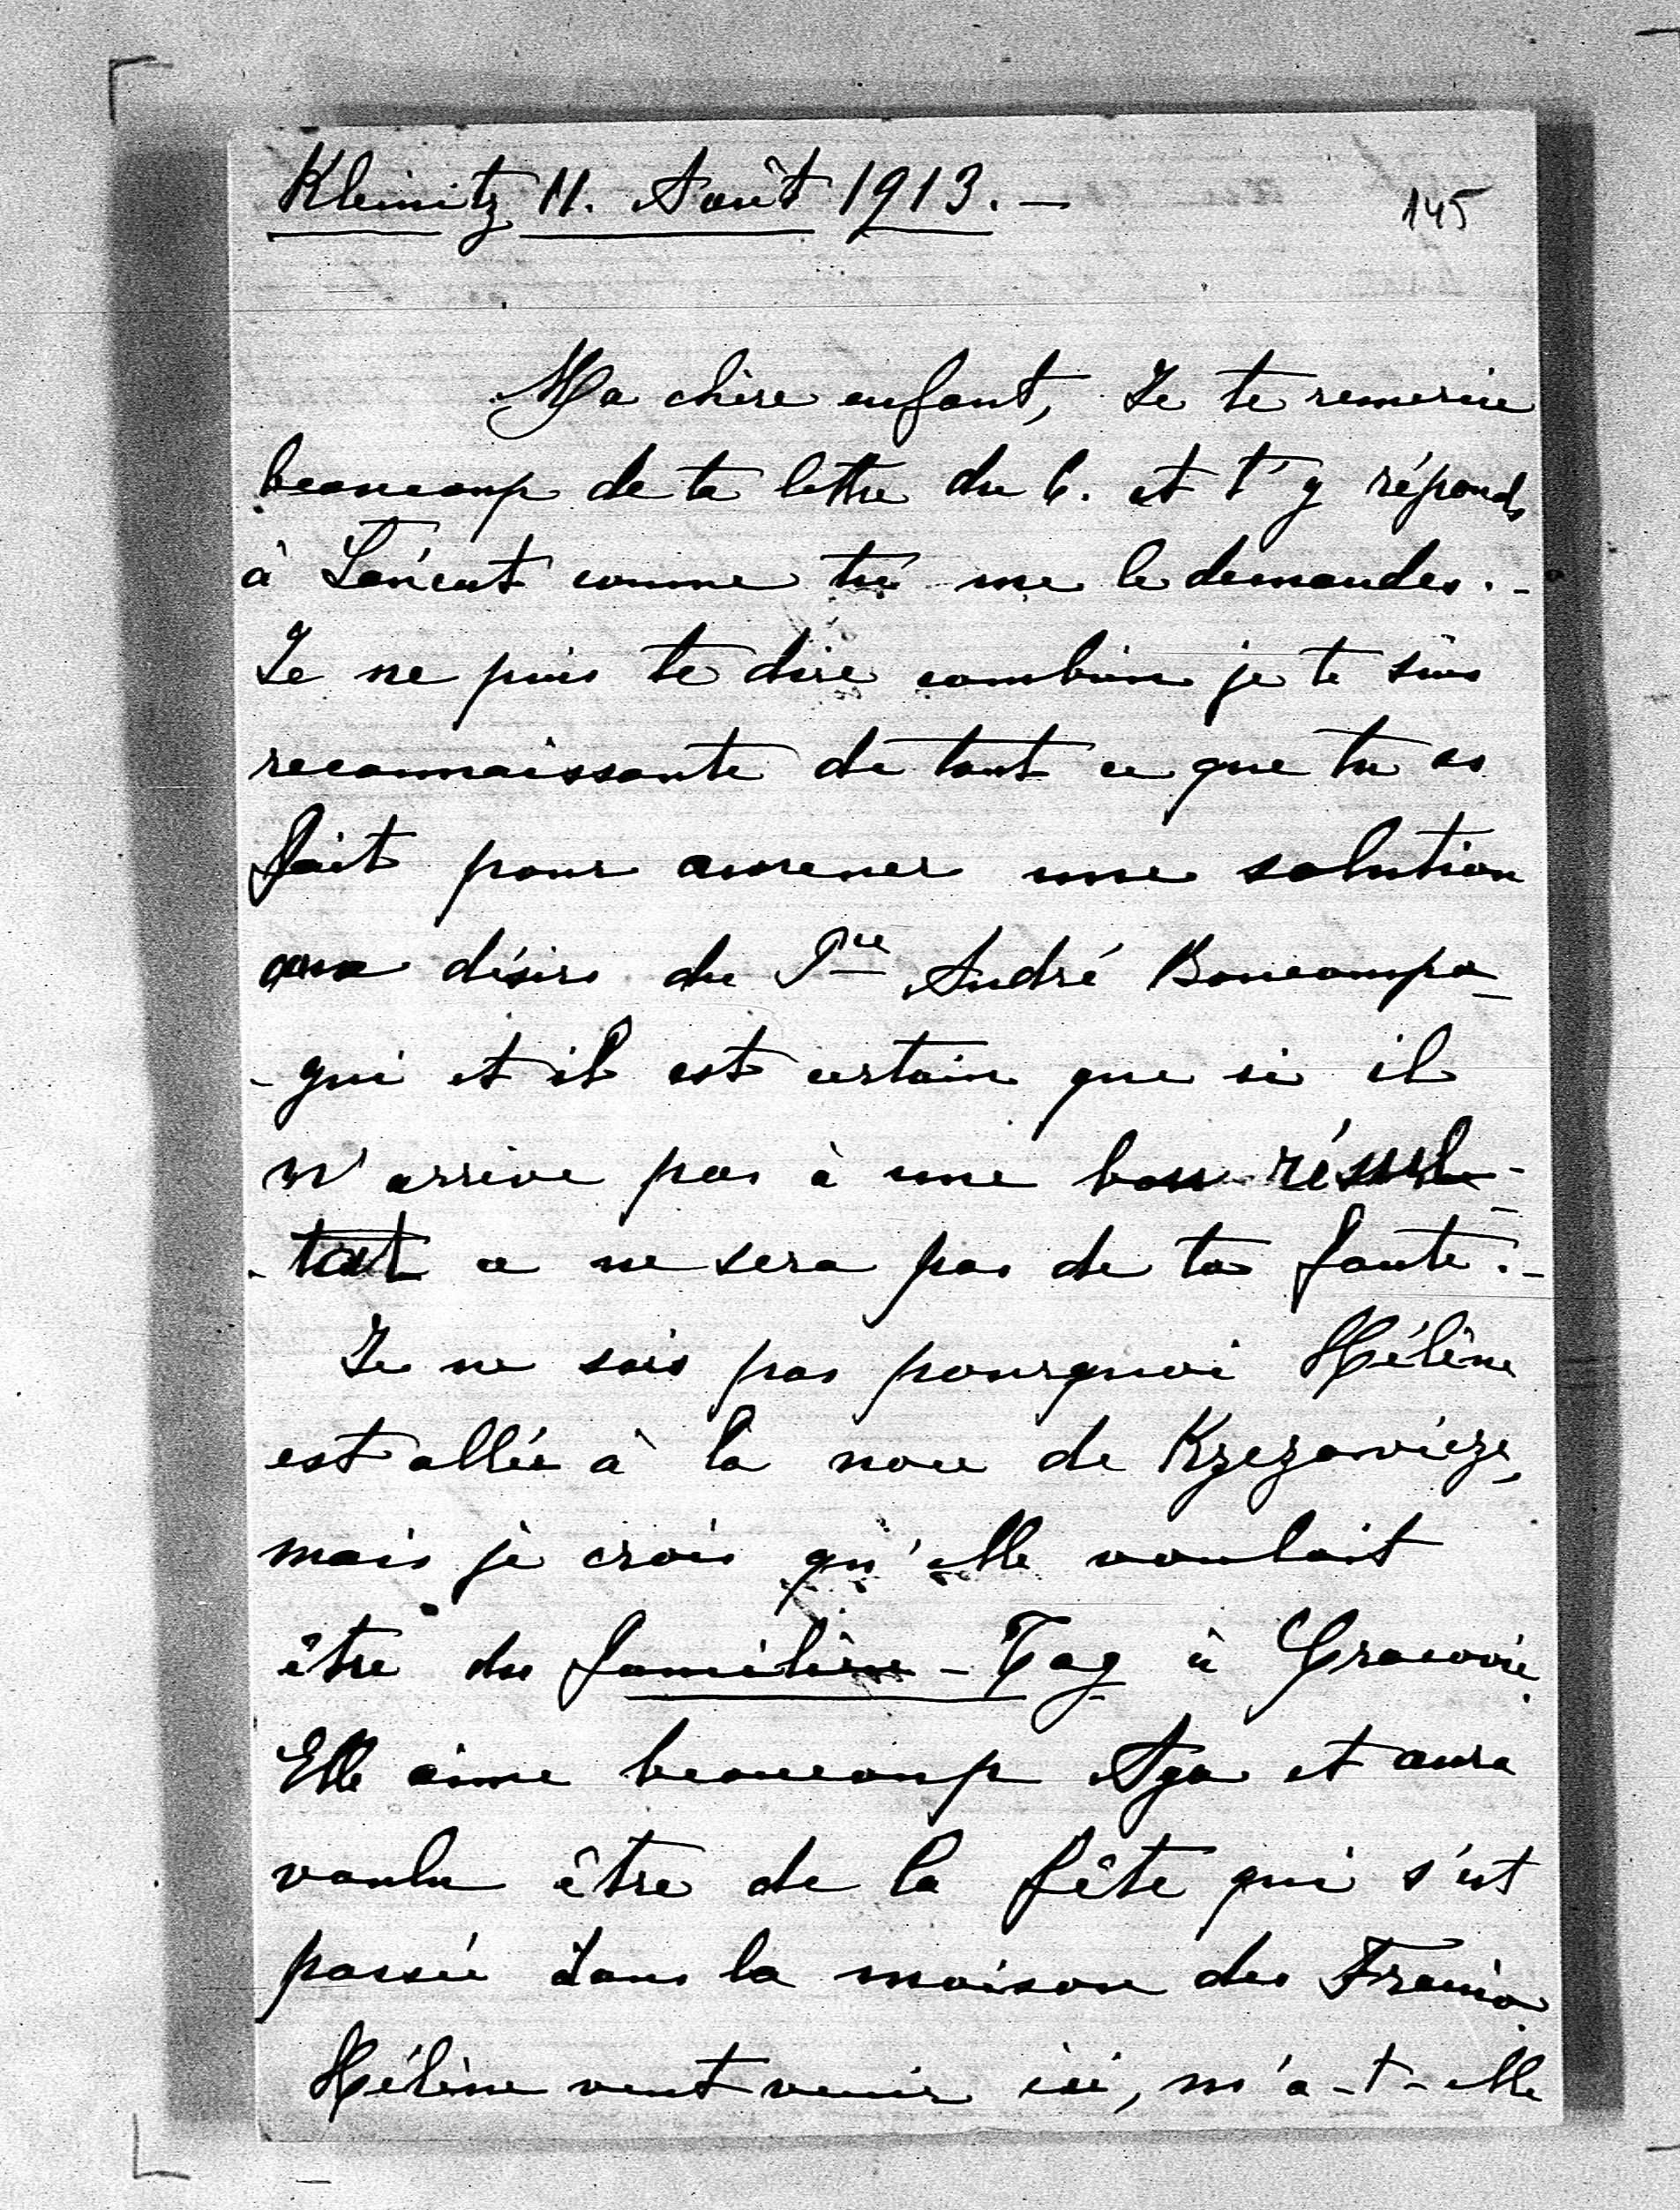 Kleinitz 11. Août 1913. —
145
Ma chère enfant, Je te remercie
beaucoup de ta lettre du 6. et t'y réponds
à Lańcut comme tu me le demandes. -
Je ne puis te dire combien je te suis
reconnaissante de tout ce que tu as
fait pour amener une solution
aux désirs du Pce André Boncompa-
-gni et il est certain que si il
n'arrive pas à une bon résul-
-tat ce ne sera pas de ta faute. -
Je ne sais pas pourquoi Hélène
est allée à la noce de
mais je crois qu'elle voulait
être du Familien-Tag à Cracovie.
Elle aime beaucoup Aga et aura
voulu être de la fête qui s'est
passée dans la maison des
Hélène veut venir ici, m'a-t-elle